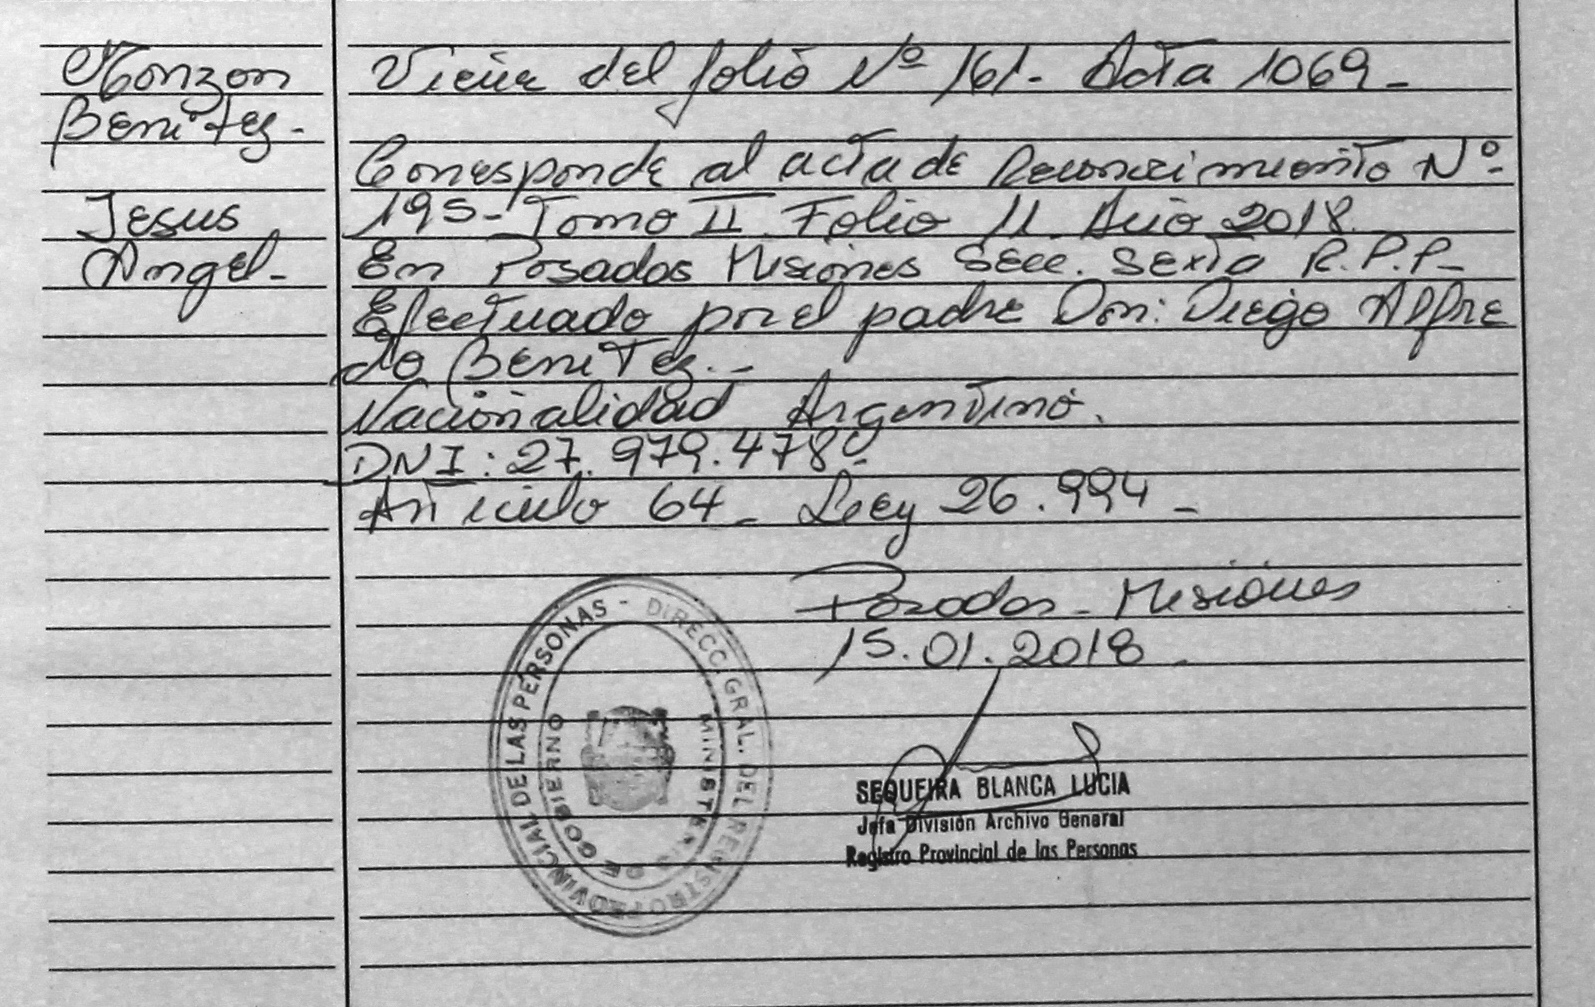 Monzon
Benitez-
Jesus
Angel-
Viene del folio Nº 161- Acta 1069-
Corresponde al acta de Reconocimiento Nº
195- Tomo II Folio 11. Año 2018.
En Posadas Misiones Secc. Sexta R.P.P-
Efectuado por el padre Don: Diego Alfre
do Benitez.-
Nacionalidad Argentino.
DNI: 27.979.478º-
Articulo 64- Ley 26.994-
Posadas- Misiones
15.01.2018-
DIRECC. GRAL. DEL REGISTRO PROVINCIAL DE LAS PERSONAS -
MINISTERIO DE GOBIERNO
SEQUEIRA BLANCA LUCIA
Jefa División Archivo General
Registro Provincial de las Personas